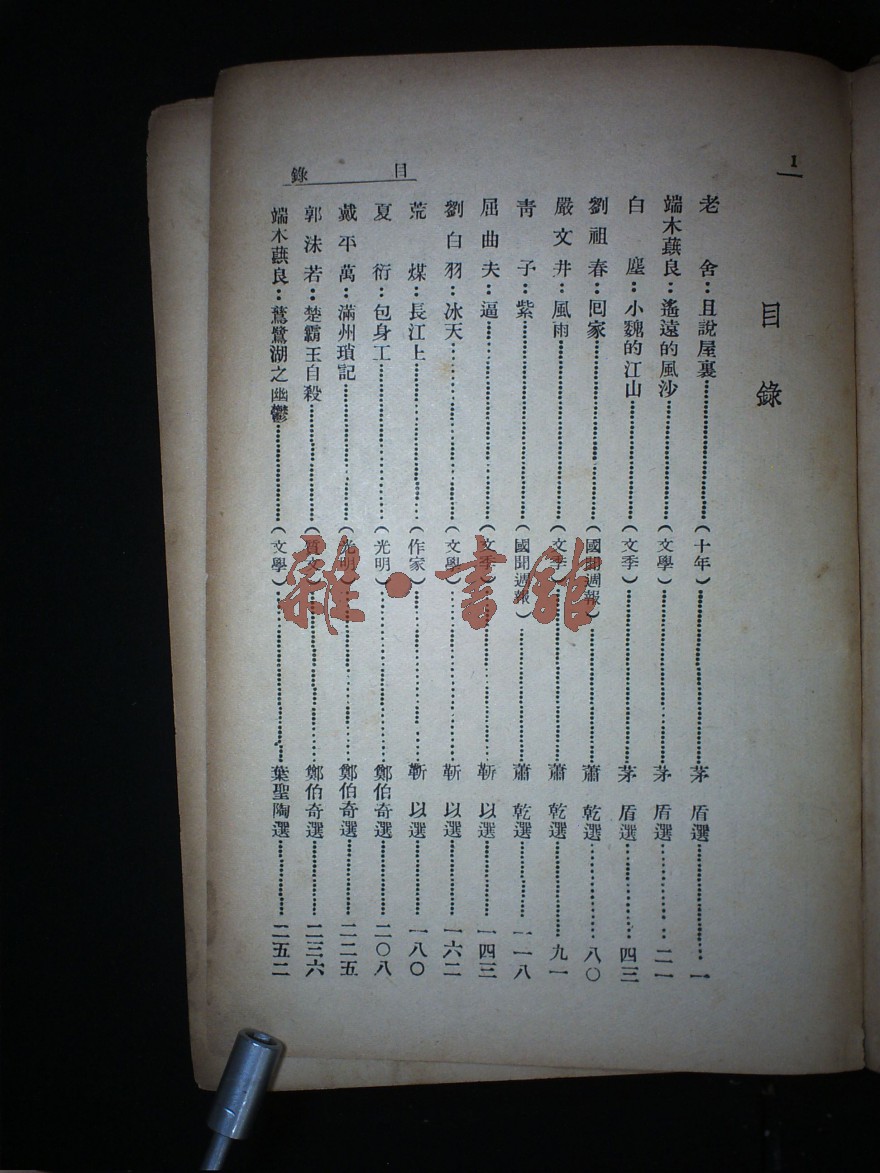 1
目錄
目錄
老舍：且說屋裏（十年）茅盾選一
端木蕻良：遙遠的風沙（文學）茅盾選二一
白塵：小魏的江山（文季）茅盾選四三
劉祖春：回家（國聞週報）蕭乾選八〇
嚴文井：風雨（文季）蕭乾選九一
青子：紫（國聞週報）蕭乾選一一八
屈曲夫：逼（文季）靳以選一四三
劉白羽：冰天（文學）靳以選一六二
荒煤：長江上（作家）靳以選一八〇
夏衍：包身工（光明）鄭伯奇選二〇八
戴平萬：滿州瑣記（光明）鄭伯奇選二二五
郭沫若：楚霸王自殺（質文）鄭伯奇選二三六
端木蕻良：鴜鷺湖之幽鬱（文學）葉聖陶選二五二
雜·書館